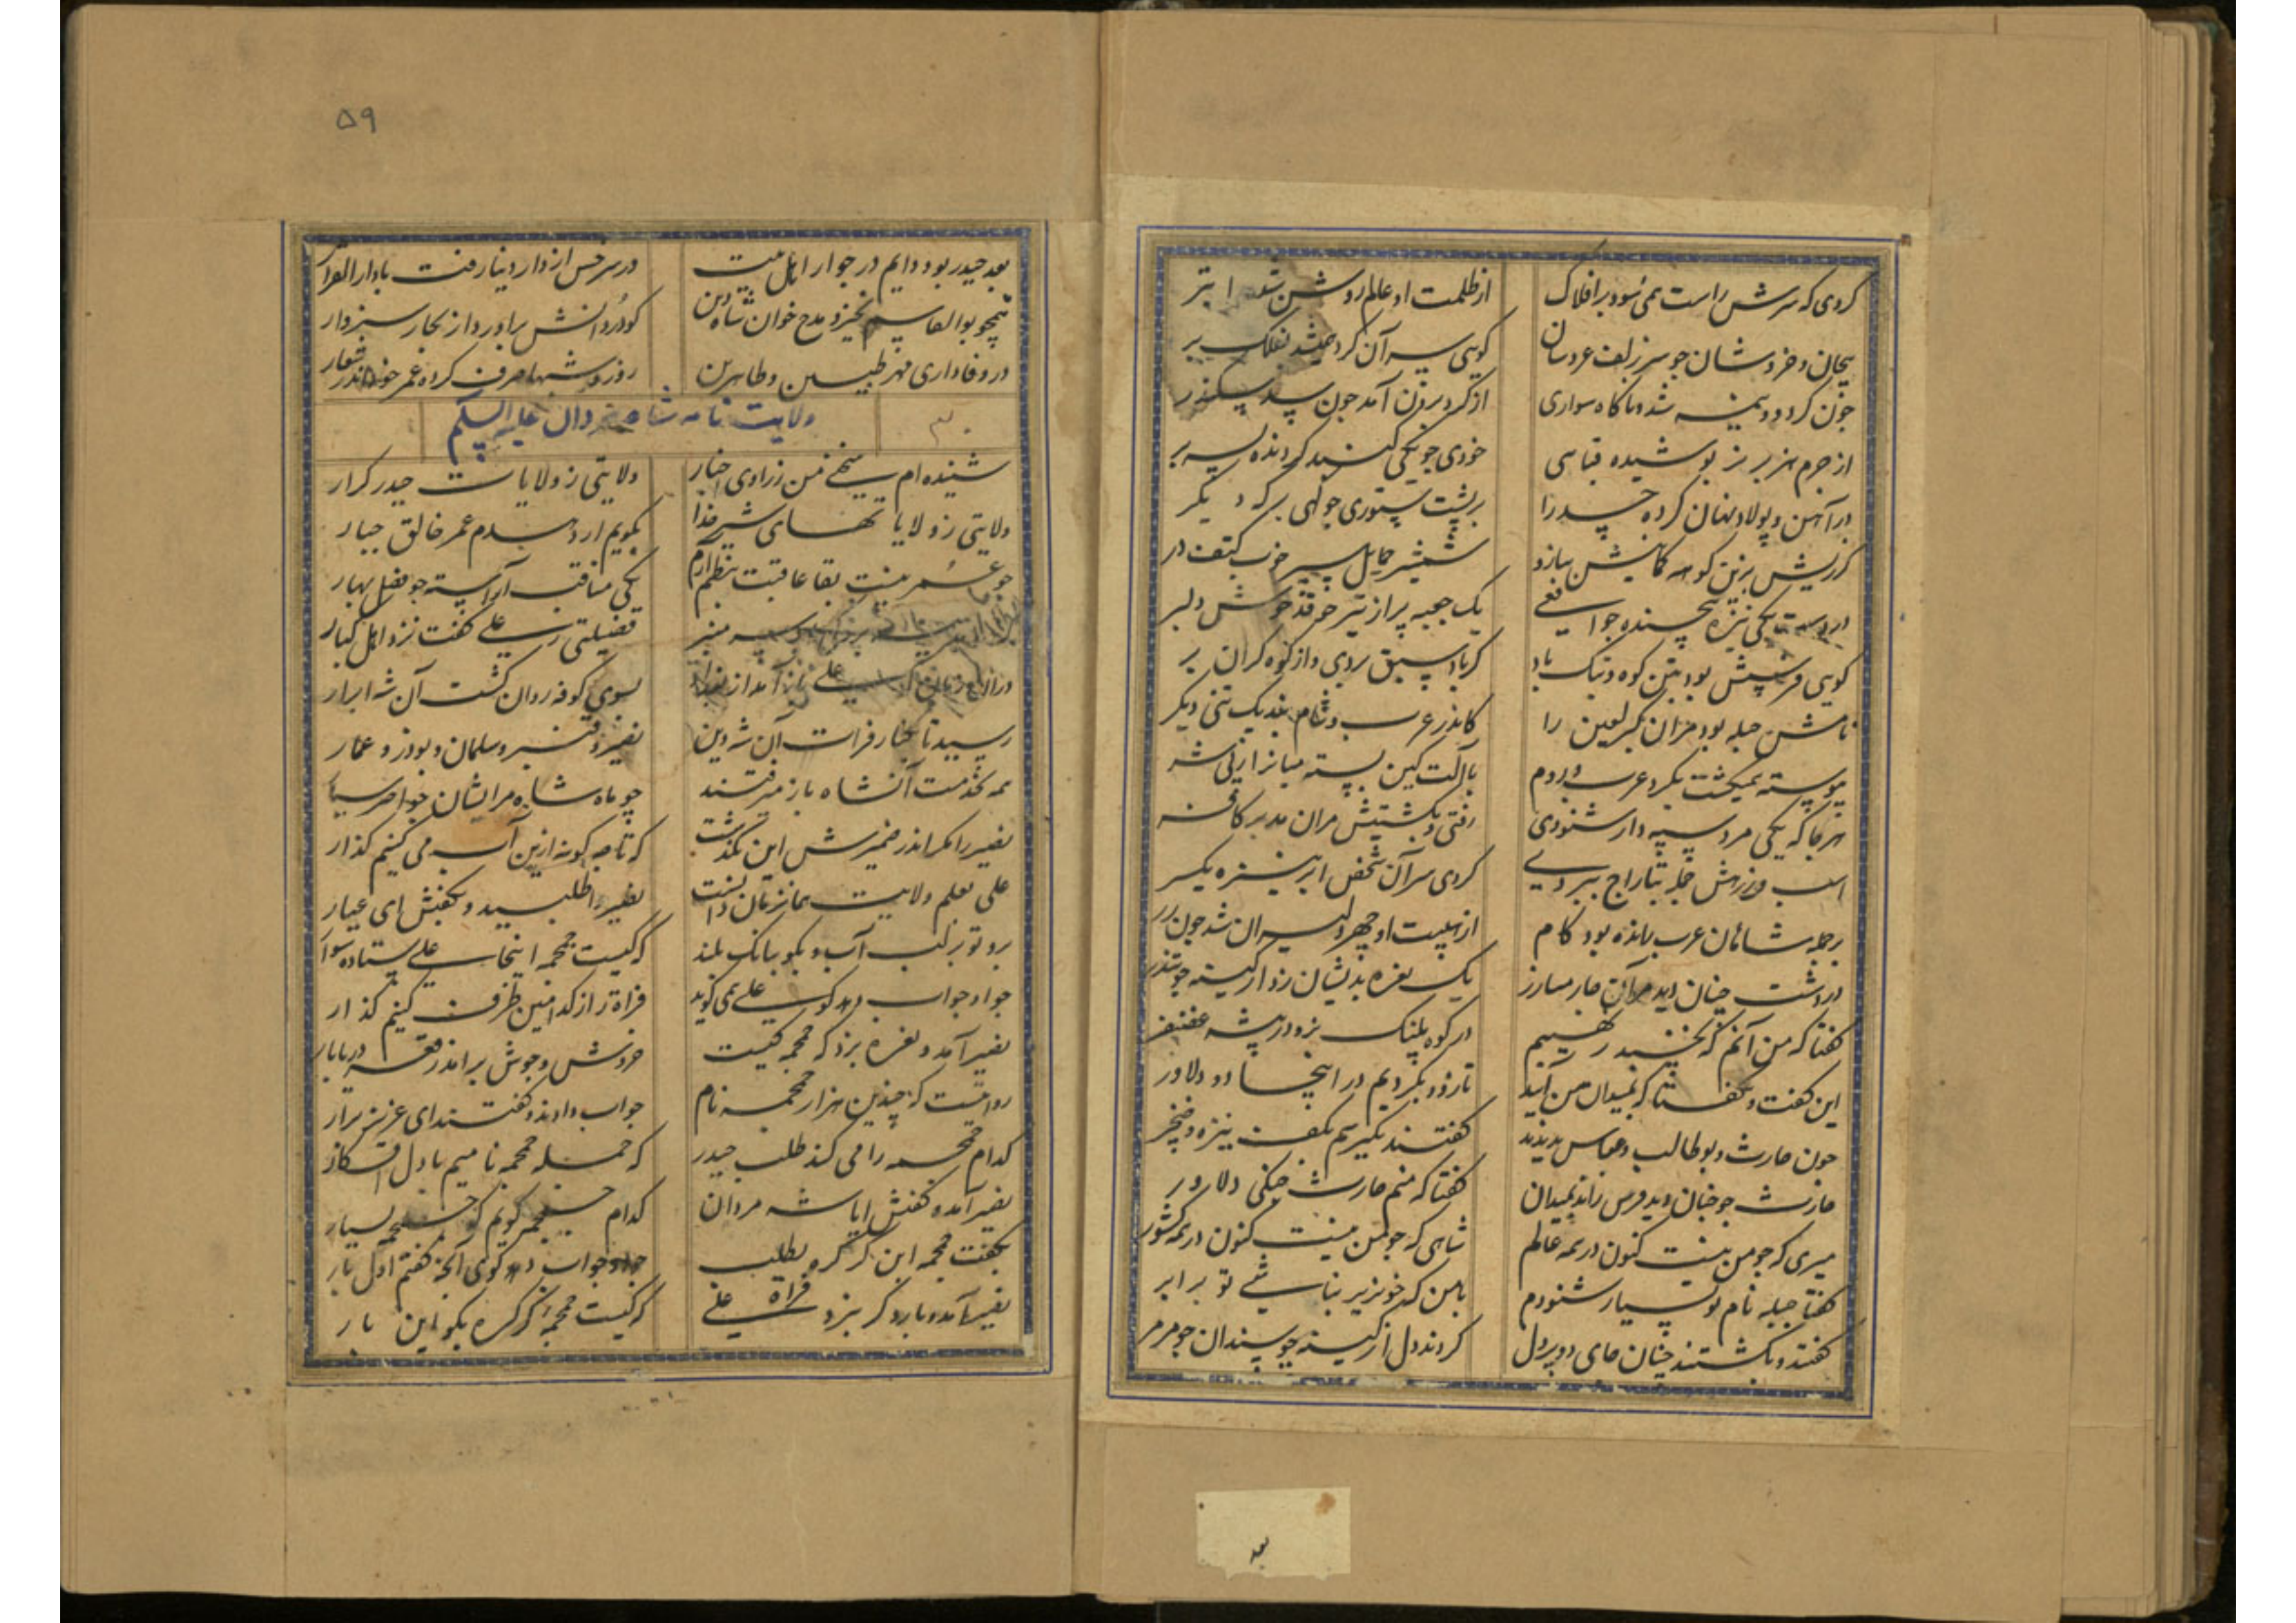 کردی که سرش راست همی سود بر افلاک از ظلمت او عالم روشن شده ابتر
پیچان و خروشان جو سر زلف عروسان کویی سر آن کرد همی شد بفلک بر
جون کرد دو نیمه شد و ناکاه سواری از کرد برون آمد جون سد سکندر
از جرم هزبر بر پوشیده قبایی خودی جو یکی کنبد کردنده بسر بر
در آهن و پولاد نهان کرده جسد را بر پشت ستوری جو کهی بر که دیکر
شمشیر حمایل سپر خوب بکتف در
در دست یکی نیزه پیچنده جو افعی یک جعبه پر از تیر خدنک
کویی فرسش بود بتن کوه و بتک باد کز باد سبق بردی و از کوه کران بر
نامش جبله بود مران کبر لعین را کاندر عرب و شام نبد یک تنی دیکر
پیوسته همیکشت بکرد عرب و روم با آلت کین بسته میانرا ز پی شر
هر جا که یکی مرد سپه دار شنودی رفتی و بکشتیش مران مدبر کافر
اسب و زرهش جمله بتاراج ببردی کردی سر آن شخص ابر نیزه یکسر
بر جمله شاهان عرب رانده بود کام از هیبت او چهره شیران شده جون زر
در دشت چنان دید مر آن چار مبارز یک نعره بدیشان زد از کینه جو تندر
کفتا که من آنم که نخسبد ز نهیبم در کوه پلنک نر و در بیشه غضنفر
این کفت و بکفتا که بمیدان من آیید تا رزم بکردیم در اینجا دو دلاور
جون حارث و بوطالب و عباس بدیدند کفتند بکیریم بکف نیزه و خنجر
حارث جو چنان دید فرس راند بمیدان کفتا که منم حارث جنکی دلاور
میری که جو من نیست کنون در همه عالم شاهی که جو من نیست کنون در همه کشور
کفتا جبله نام تو بسیار شنودم با من که خونریز نباشی تو برابر
کفتند و بکشتند چنان جای دو پر دل کردند دل از کینه چو سندان جو مرمر
بعد
۵۹
بعد حیدر بود دایم در جوار اهل بیت در سرخس از دار دنیا رفت با دار القرار
همچو بوالقاسم نخیزد مدح خوان شاه دین کو در دانش برآورد از بحار سبزوار
در وفاداری مهر طیبین و طاهرین روز و شبها صرف کرده عمر خود اندر شعار
ولایت نامه شاه مردان علیه السلم
۳۰
شنیده‌ام سخنی من ز راوی اخبار ولایتی ز ولایات حیدر کرار
ولایتی ز ولایاتهای شیر خدا بکویم ار دهدم عمر خالق جبار
جو عمر نیست بقا عاقبت بنظم آرم یکی مناقب آراسته جو فصل بهار
بر سر منبر فضیلتی ز علی کفت نزد اهل کبار
در آن زمان که علی باز آمد از بغداد بسوی کوفه روان کشت آن شه ابرار
رسید تا بکنار فرات آن شه دین نصیر و قنبر و سلمان و بوذر و عمار
همه بخدمت آنشاه باز میرفتند چو ماه شاه مر ایشان
نصیر را مکر اندر ضمیرش این بکذشت که تا چه کونه ازین آب می کنیم کذار
علی بعلم ولایت همانزمان دانست نصیر را طلبید و بکفتش ای عیار
برو تو بر لب آب و بکو ببانک بلند که کیست جمجمه اینجا علی ستاده سوار
جو او جواب دهد کو علی همی کوید فراة را ز کدامین طرف کنیم کذار
نصیر آمد و نعره بزد که جمجمه کیست خروش و جوش برآمد ز قعر دریابار
روا نیست که چندین هزار جمجمه نام جواب دادند و کفتند ای عزیز برار
کدام جمجمه را می کند طلب حیدر که جمله جمجمه نامیم با دل افکار
نصیر آمد و کفتش ایا شه مردان کدام جمجمه کویم که جمجمه بسیار
بکفت جمجمه ابن کرکره بطلب جو او جواب دهد کوی آنچه کفتم اول بار
نصیر آمد و بار دکر بزد نعره که کیست جمجمه کرکره بکو این بار